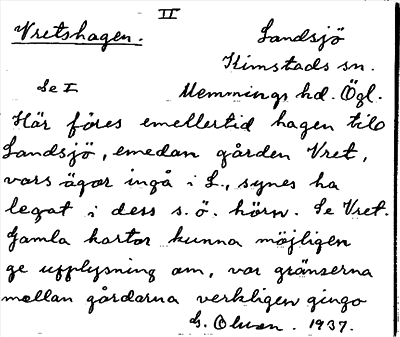 II
Vretshagen.
Landsjö
Kimstads sn.
Se I
Memmings hd. Ögl.
Här föres emellertid hagen till
Landsjö, emedan gården Vret,
vars ägor ingå i L., synes ha
legat i dess s.ö. hörn. Se Vret.
Gamla kartor kunna möjligen
ge upplysning om, var gränserna
mellan gårdarna verkligen gingo
G. Olsson. 1937.